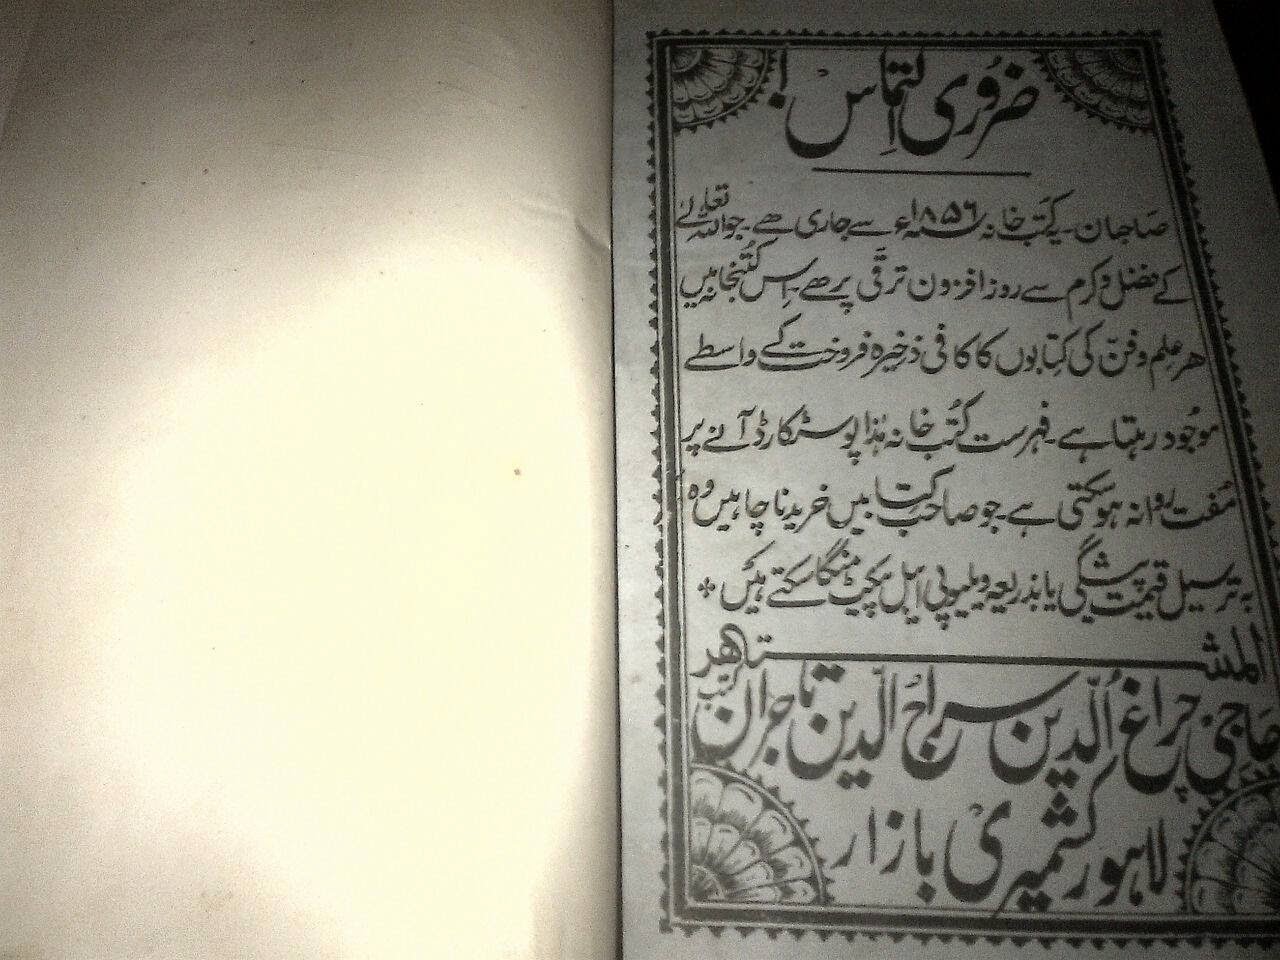 ضروری التماس!
صاحبان۔ یہ کتب خانہ ۱۸۵۶ء سے جاری ہے۔ جو اللہ تعالےٰ
کے فضل و کرم سے روز افزون ترقی پر ہے۔ اِس کتبخانہ میں
ہر علم و فن کی کتابوں کا کافی ذخیرہ فروخت کے واسطے
موجود رہتا ہے۔ فہرست کتب خانہ ہٰذا پوسٹکارڈ آنے پر
مُفت روانہ ہو سکتی ہے۔ جو صاحب کتابیں خریدنا چاہیں وہ
بہ ترسیل قیمت پیشگی یا بذریعہ ویلیو پی ایبل پیکیٹ منگا سکتے ہیں
المشتہر
حاجی چراغ الدین سراج الدین تاجران کتب
لاہور کشمیری بازار